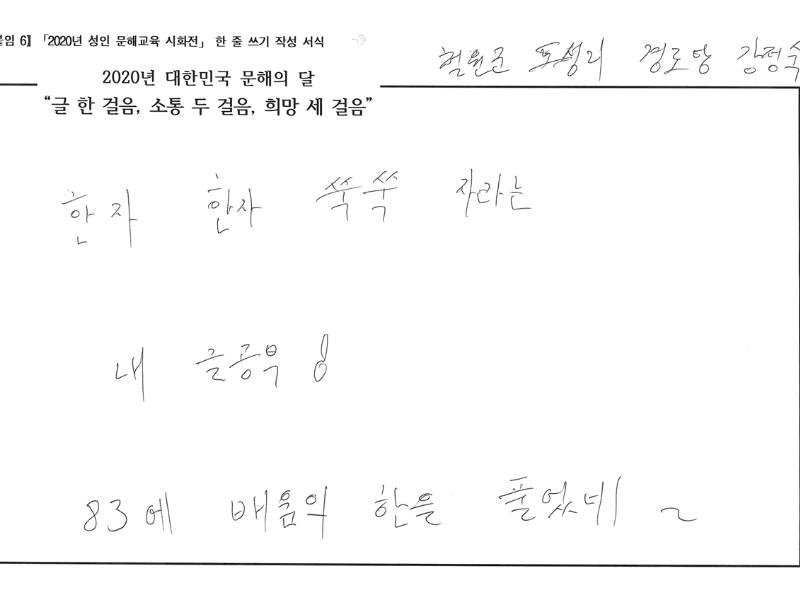 붙임 6】 「2020년 성인 문해교육 시화전」 한 줄 쓰기 작성 서식
철원군 도성리 경로당 강정숙
2020년 대한민국 문해의 달
“글 한 걸음, 소통 두 걸음, 희망 세 걸음”
한자 한자 쑥쑥 자라는
내 글공부!
83에 배움의 한을 풀었네 ~